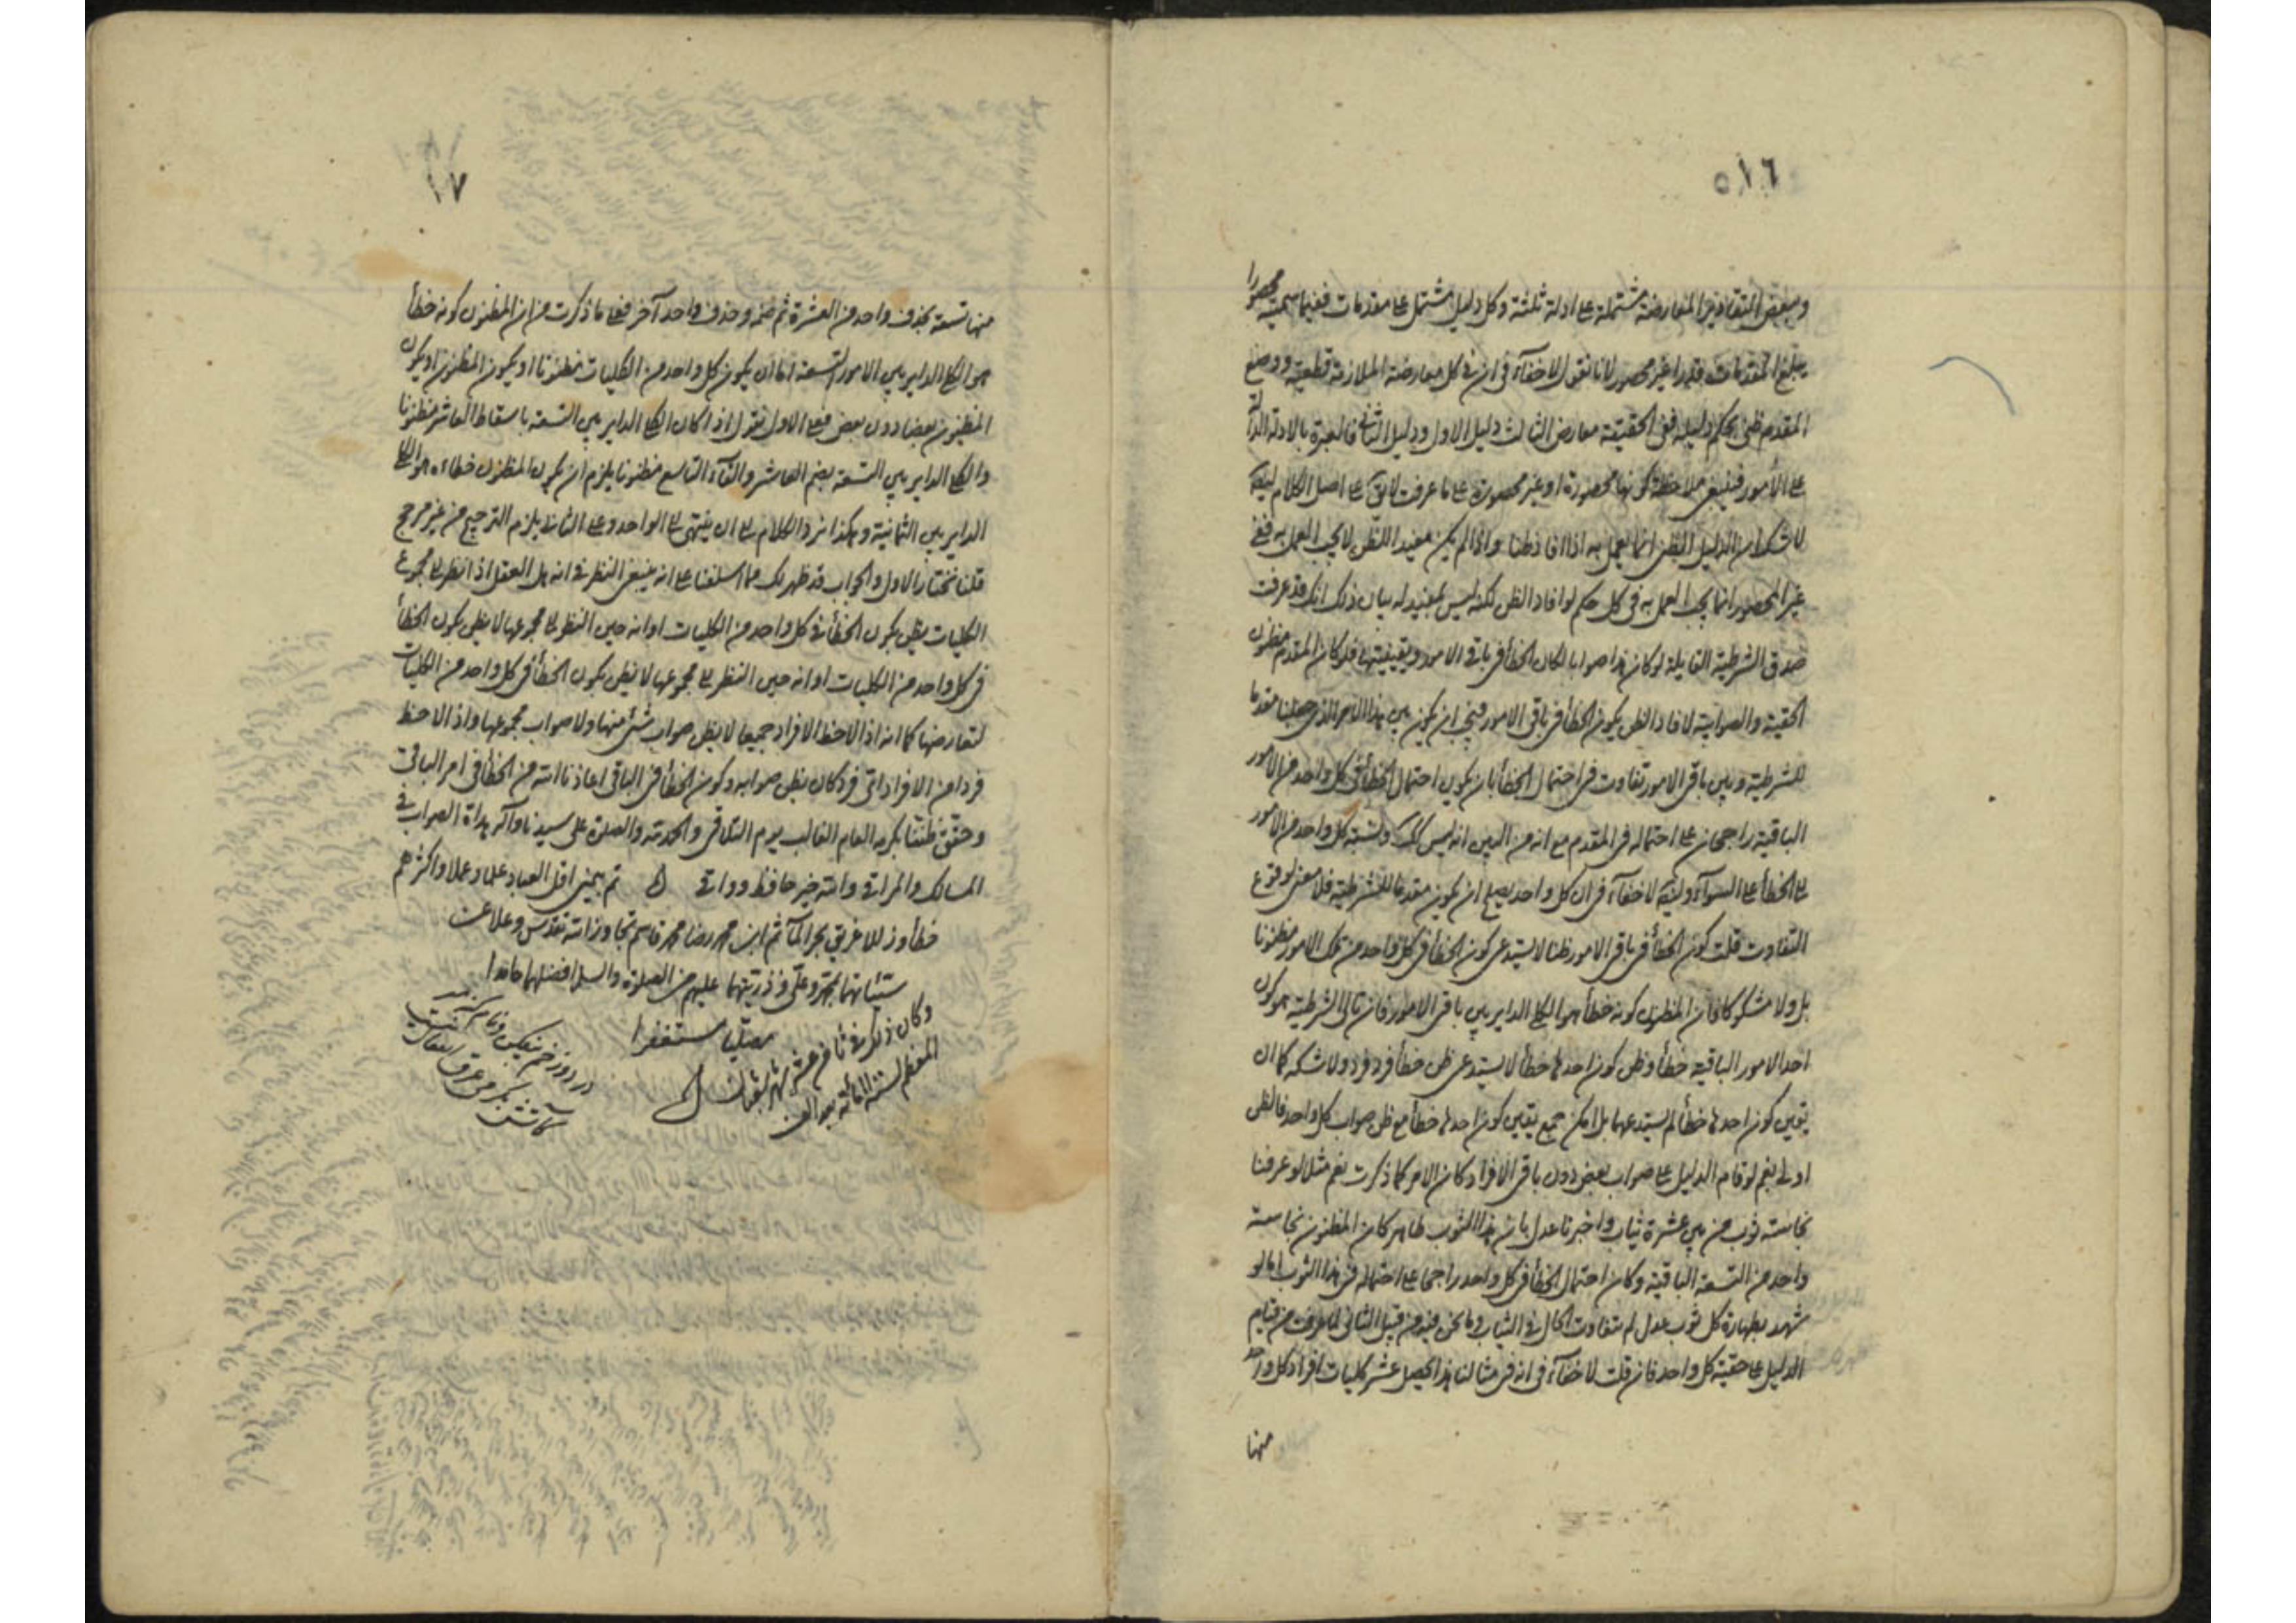 ٥١٦
وبعض التقادير المعارضة مشتملة على ادلة ثلثة وكل دليل مشتمل على مقدمات ففيما سميته محصورا
يبلغ المقدمات قدرا غير محصور لانا نقول لا خفاء في ان في كل معارضة الملازمة قطعية ووضع
المقدم ظني بحكم دليله ففي الحقيقة معارض الثالث دليل الاول ودليل الثاني فالعبرة بالادلة الدالة
على الأمور فينبغي ملاحظة كونها محصورة او غير محصورة على ما عرفت لا يق على اصل الكلام
لا شك ان الدليل الظني انما يعمل به اذا افاد ظنا واذا لم يكن مفيدا للظن لا يجب العمل به ففي
غير المحصور انما يجب العمل به في كل حكم لو افاد الظن لكنه ليس بمفيد له بيان ذلك انك قد عرفت
صدق الشرطية القايلة لو كان هذا صوابا لكان الخطأ في باقي الامور ويقينيتها فلو كان المقدم مظنون
الحقية والصوابية لافاد الظن بكون الخطأ في باقي الامور فيجب ان يكون بين هذا الامر الذي جعلنا مقدما
للشرطية وبين باقي الامور تفاوت في احتمال الخطأ بان يكون احتمال الخطأ في كل واحد من الامور
الباقية راجحان على احتماله في المقدم مع انه من البين انه ليس كك ونسبة كل واحد من الامور
الى الخطأ على السواء لا خفاء في ان كل واحد يصلح ان يكون مقدما للشرطية فلا معنى لوقوع
التفاوت قلت كون الخطأ في باقي الامور ظنا لا يستدعي كون الخطأ في كل واحد من تلك الامور مظنونا
بل ولا مشكوكا فان المظنون كونه خطأ هو الكلي الداير بين باقي الامور فان تالي الشرطية هو كون
احد الامور الباقية خطأ وظن كون احدها خطأ لا يستدعي ظن خطأ فرد فرد ولا شكه كما ان
يقين كون احدها خطأ لم يستدعهما بل امكن جمع يقين كون احدها خطأ مع ظن صواب كل واحد فالظن
اولى نعم لو قام الدليل على صواب بعض دون باقي الافراد كان الامر كما ذكرت نعم مثل لو عرفنا
نجاسة ثوب من بين عشرة ثياب واخبرنا عدل بان هذا الثوب طاهر كان المظنون نجاسة
واحد من التسعة الباقية وكان احتمال الخطأ في كل واحد راجحا على احتماله في هذا الثوب اما لو
شهد بطهارة كل ثوب عدل لم يتفاوت الحال في الثياب وما نحن فيه من قبيل الثاني لما عرفت من قيام
الدليل على حقية كل واحد فان قلت لا خفاء في انه في مثالنا هذا يحصل عشر كليات افراد كل واحد
منها
١٧
منها تسعة بحذف واحد من العشرة ثم ضمه وحذف واحد آخر فعلى ما ذكرت من ان المظنون كونه خطأ
هو الكلي الداير بين الامور التسعة اما ان يكون كل واحد من الكليات مظنونا او يكون المظنون او يكون
المظنون بعضا دون بعض فعلى الاول نقول اذا كان الكلي الداير بين التسعة باسقاط العاشر مظنونا
والكلي الداير بين التسعة بضم العاشر والقاء التاسع مظنونا يلزم ان يكون المظنون خطاءه هو الكلي
الداير بين الثمانية وهكذا نرد الكلام الى ان ينتهي الى الواحد وعلى الثاني يلزم الترجيح من غير مرجح
قلنا نختار الاول والجواب قد ظهر لك مما اسلفنا على انه ينبغي النظر في انه هل العقل اذا نظر الى مجموع
الكليات يظن بكون الخطأ في كل واحد من الكليات او انه حين النظر الى مجموعها لا يظن بكون الخطأ
في كل واحد من الكليات او انه حين النظر الى مجموعها لا يظن بكون الخطأ في كل واحد من الكليات
لتعارضها كما انه اذا لاحظ الافراد جميعا لا يظن صواب شيء منها ولا صواب مجموعها واذا لاحظ
فردا من الافراد اتى فرد كان يظن صوابه وكون الخطأ في الباقي اعاذنا الله من الخطأ في امر الباقي
وحقق ظننا بكرمه العام الغالب يوم التلاقي والحمد لله والصلوة على سيدنا وآله هداة الصواب في
المسالك والمراقي والله خير حافظ وواقي تم بيمنى اقل العباد علما وعملا واكثرهم
خطأ وزللا غريق بحر المآثم ابن محمد رضا محمد قاسم تجاوز الله تقدس وعلا عن
سيئاتهما بمحمد وعلي وذريتهما عليهم من الصلوة والسلام افضلهما حامدا
مصليا مستغفرا
وكان ذلك في ثامن عشر شهر شعبان
المعظم لسنة المائة بعد الالف